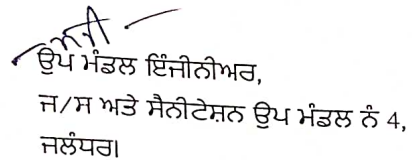 ਉਪ ਮੰਡਲ ਇੰਜੀਨੀਅਰ,
ਜ/ਸ ਅਤੇ ਸੈਨੀਟੇਸ਼ਨ ਉਪ ਮੰਡਲ ਨੰ 4,
ਜਲੰਧਰ।